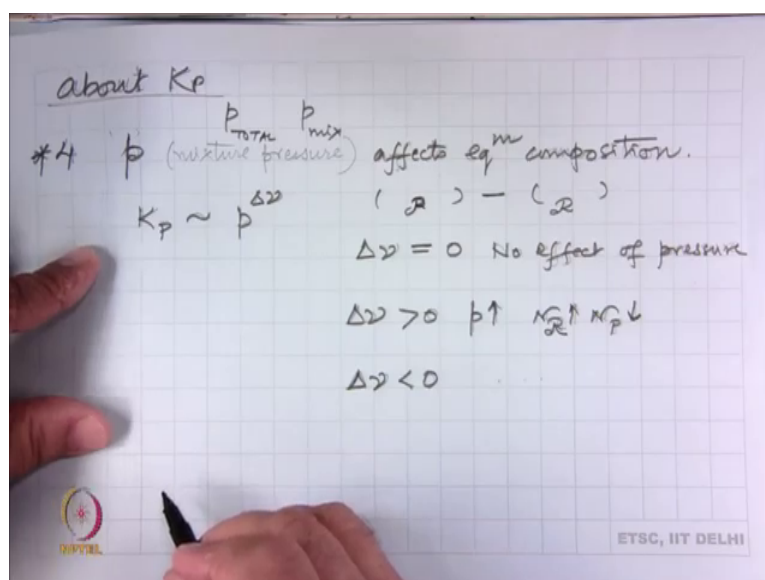 about Kp
P TOTAL P mix
*4 p (mixture pressure) affects eqᵐ composition.
Kp ~ p^Δν ( R ) - ( R )
Δν = 0 No effect of pressure
Δν > 0 p↑ N_R↑ N_P↓
Δν < 0
NPTEL
ETSC, IIT DELHI